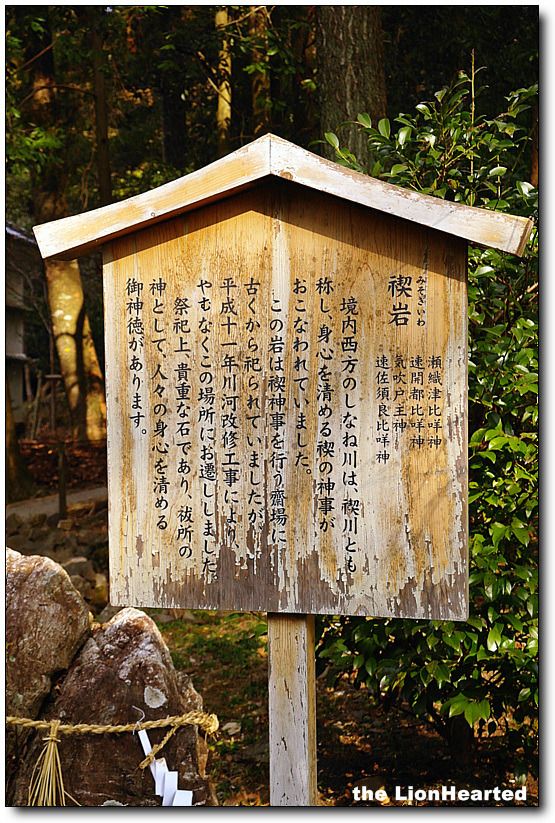 みそぎいわ
禊岩
瀬織津比咩神
速開都比咩神
気吹戸主神
速佐須良比咩神
境内西方のしなね川は、禊川とも
称し、身心を清める禊の神事が
おこなわれていました。
この岩は禊神事を行う齋場に
古くから祀られていましたが、
平成十一年川河改修工事により、
やむなくこの場所にお遷ししました。
祭祀上、貴重な石であり、祓所の
神として、人々の身心を清める
御神徳があります。
the LionHearted